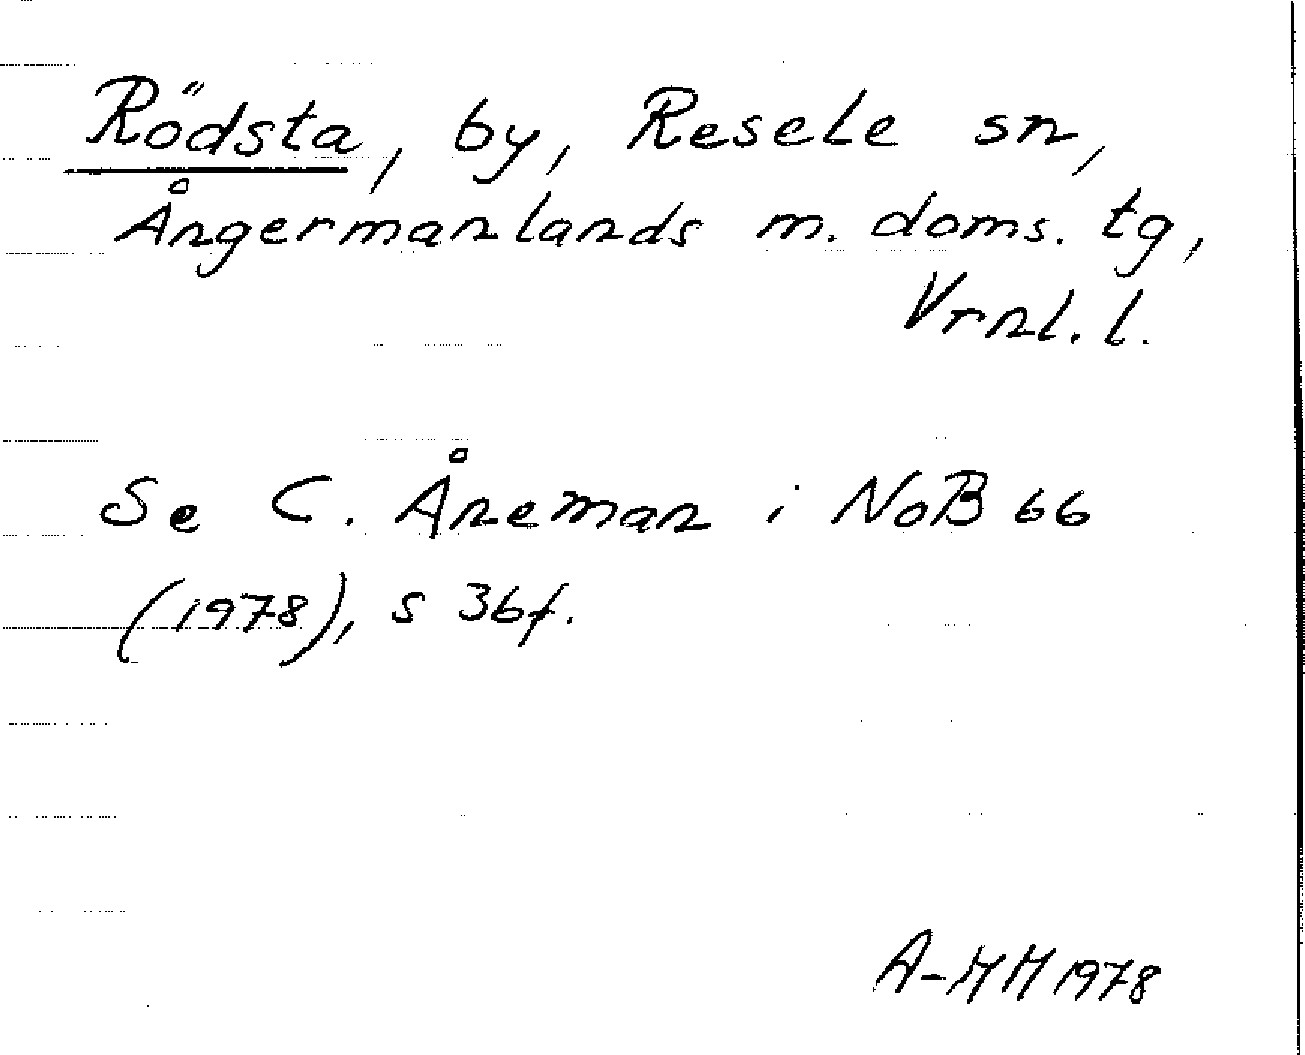 Rödsta, by, Resele sn,
Ångermanlands m. doms. tg,
Vrnl. l.
Se C. Åneman i NoB 66
(1978), s 36f.
A-MM 1978